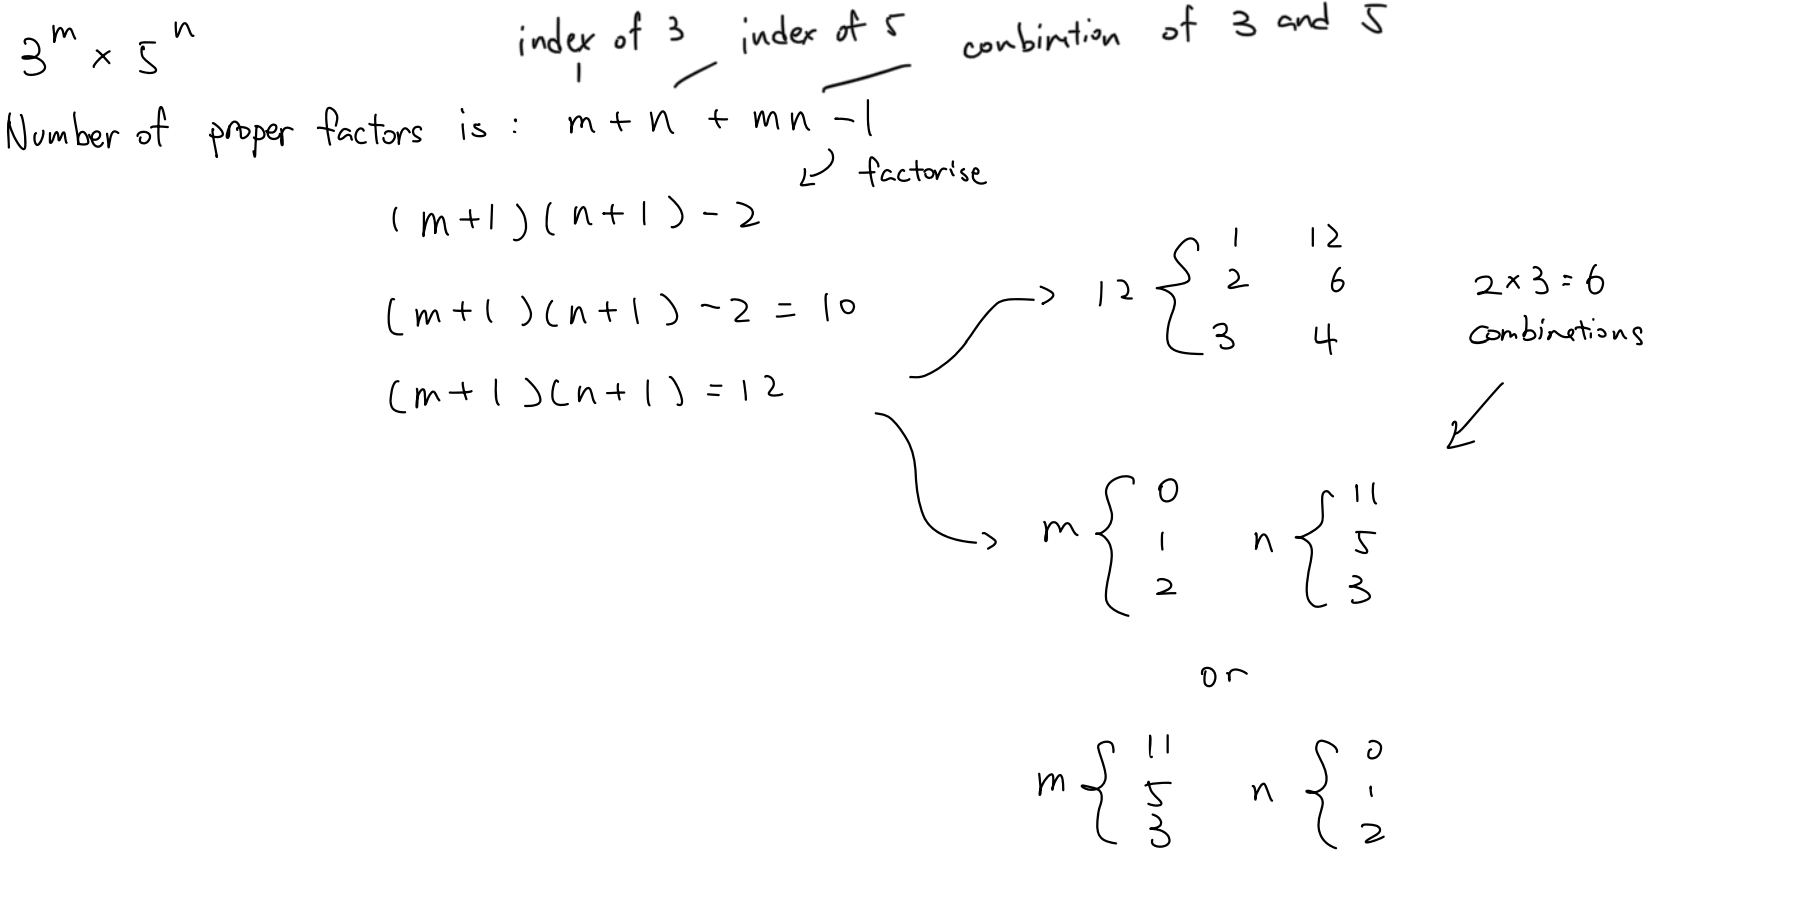 3^m × 5^n
index of 3 index of 5 combination of 3 and 5
Number of proper factors is : m + n + mn - 1
factorise
(m+1)(n+1) - 2
(m+1)(n+1) - 2 = 10
(m+1)(n+1) = 12
12 { 1 12
2 6
3 4
2 × 3 = 6
combinations
m { 0 n { 11
1 5
2 3
or
m { 11 n { 0
5 1
3 2